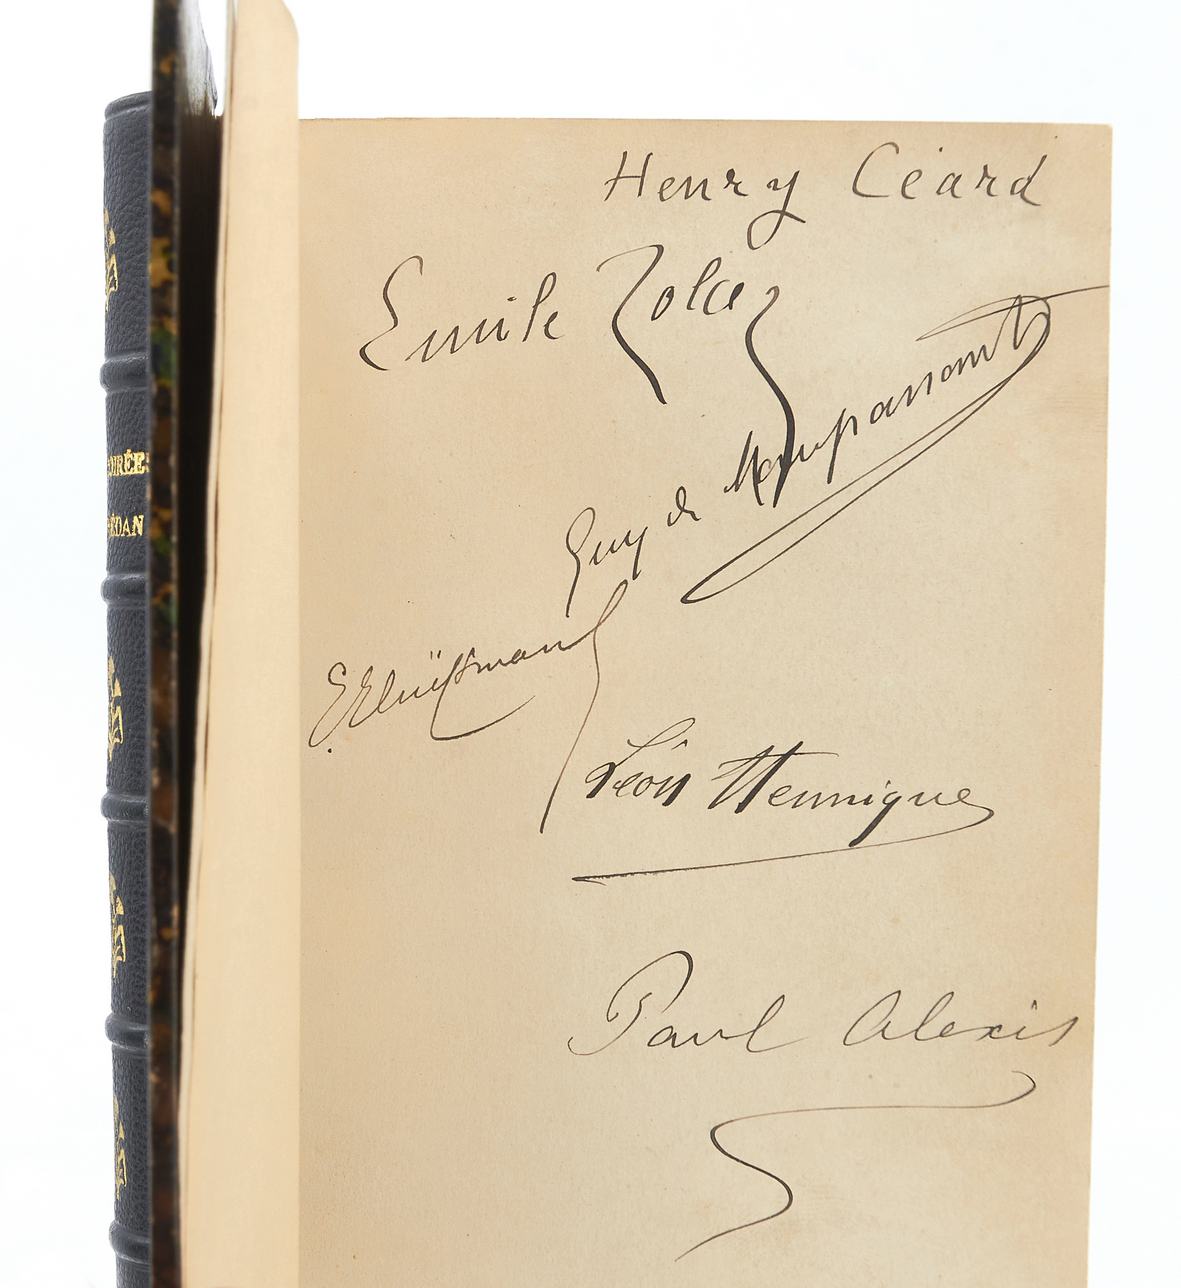 OIRÉES
ÉDAN
Henry Céard
Emile Zola
Guy de Maupassant
Léon Hennique
Paul Alexis